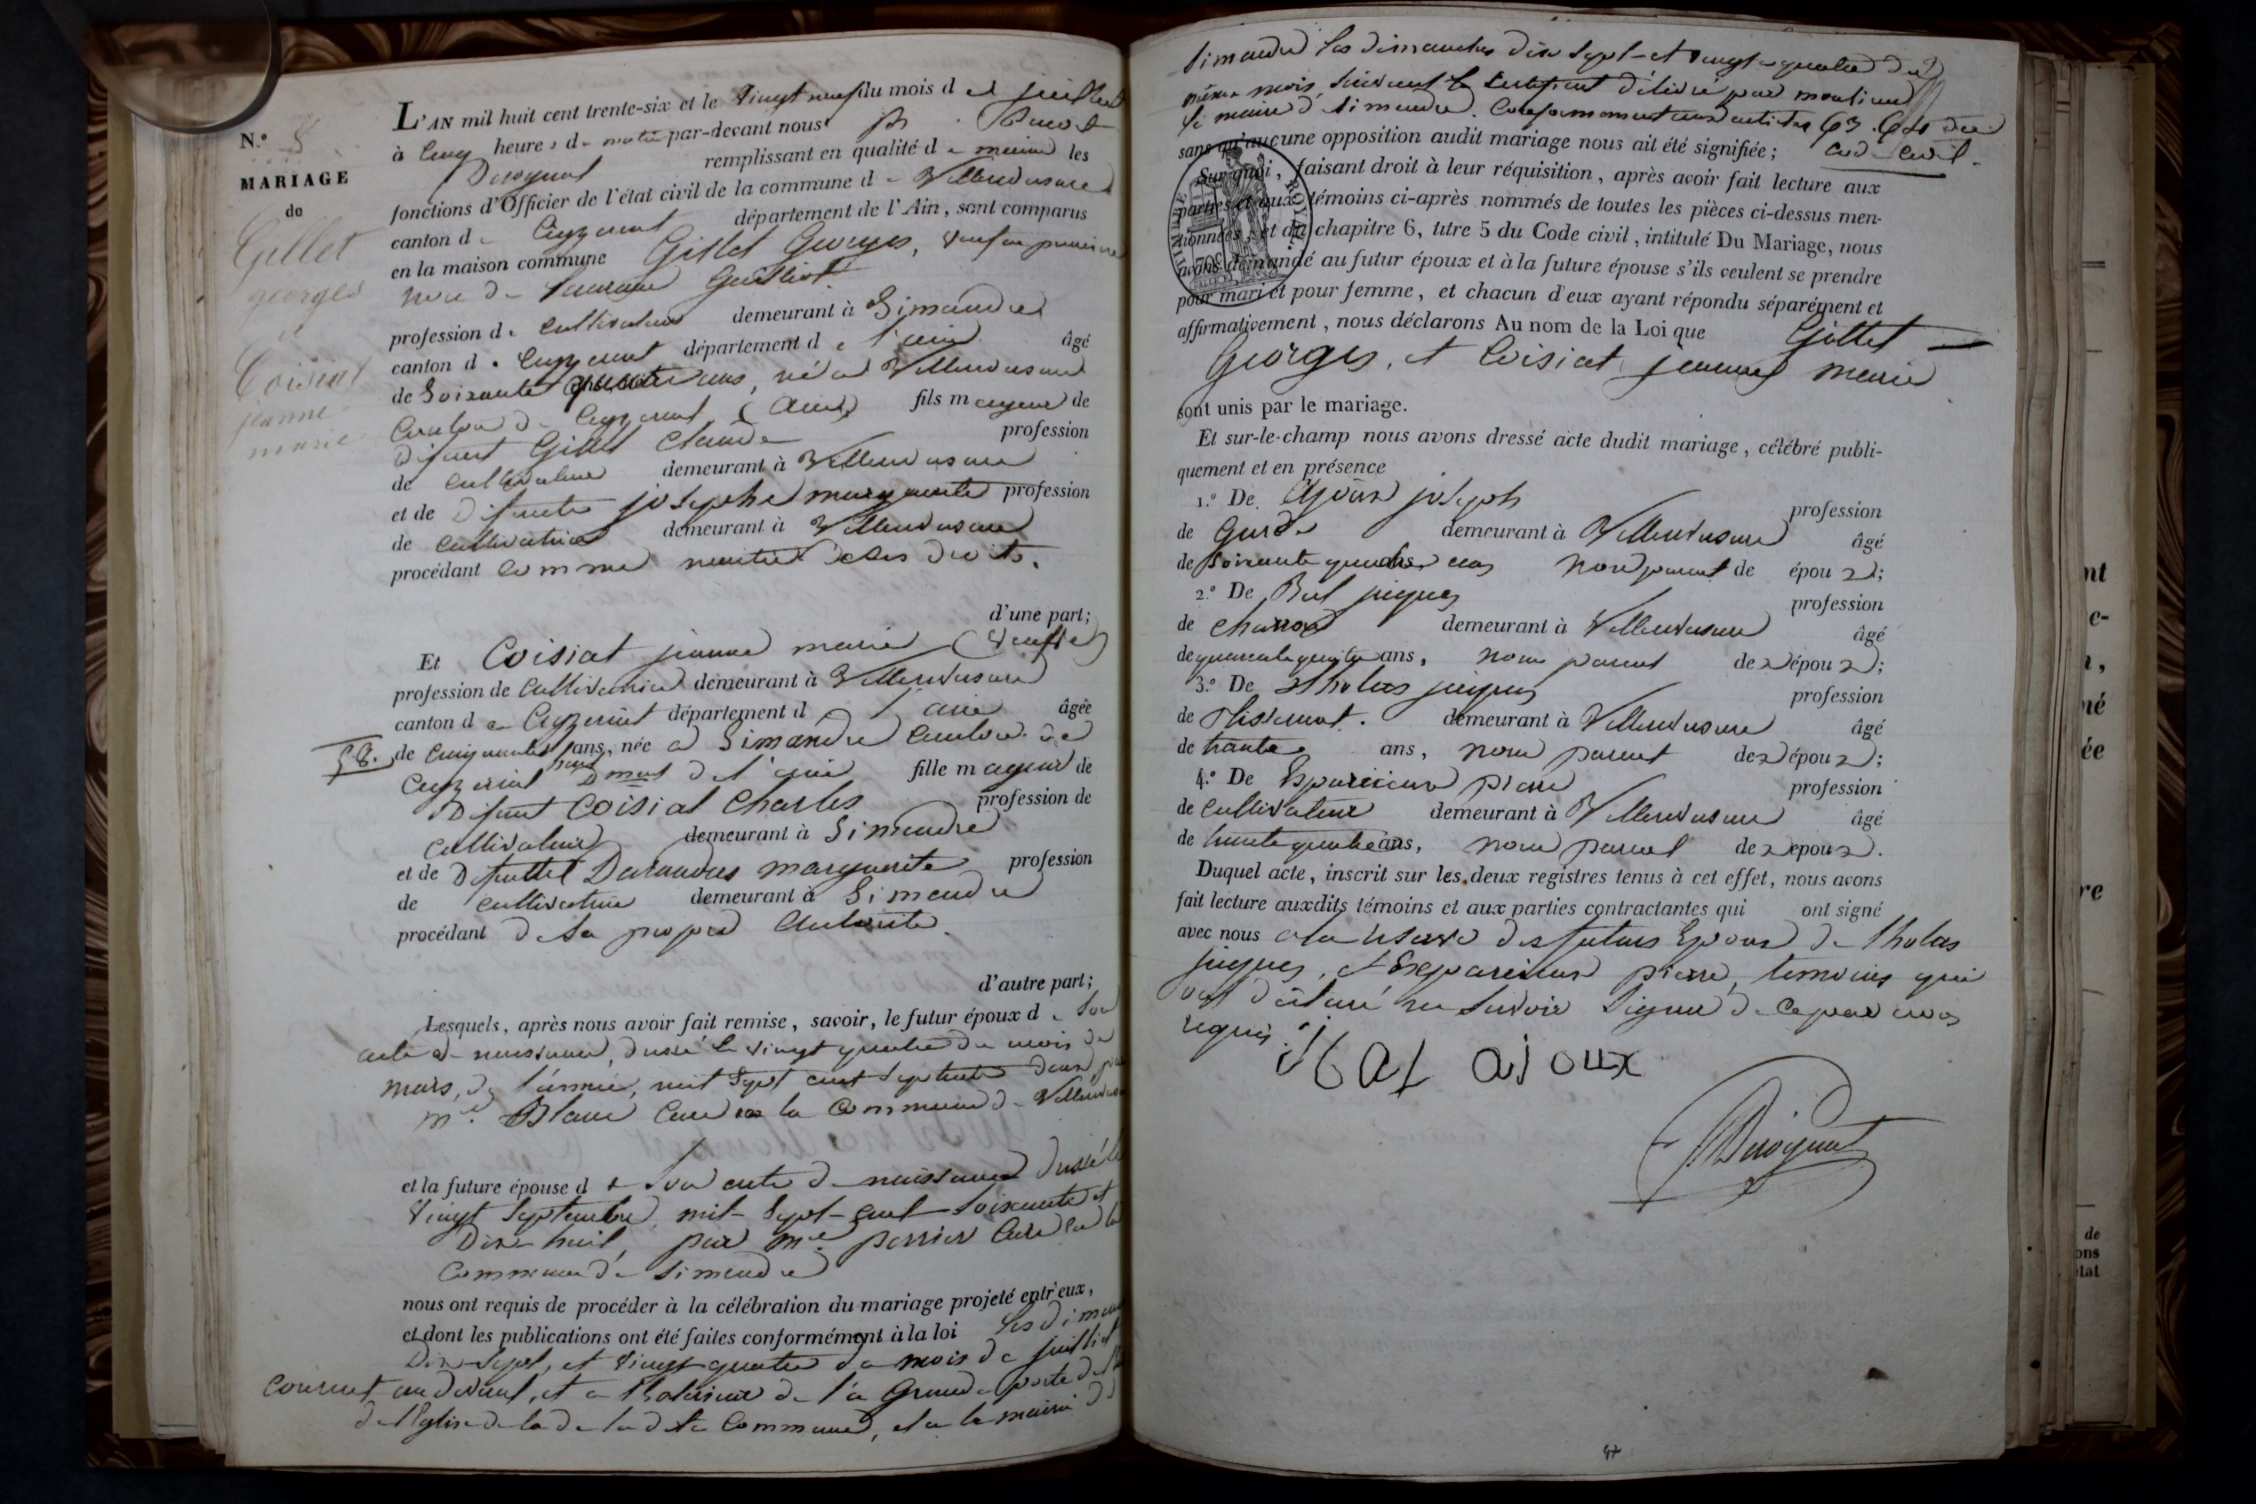 N.º 8
MARIAGE
de
Gillet
georges
et
Coisiat
jeanne
marie
L'AN mil huit cent trente-six et le vingt neuf du mois d e juillet
à cinq heures d matin par-devant nous
remplissant en qualité de maire les
fonctions d'Officier de l'état civil de la commune d Villereversure
canton d Ceyzeriat département de l'Ain, sont comparus
en la maison commune Gillet Georges, veuf en premiere
profession de cultivateur demeurant à Simandre
canton d Ceyzeriat département d e l'ain âgé
de Soixante quatre ans, né a Villereversure
Canton de Ceyzeriat (ain) fils majeur de
Défunt Gillet Claude profession
de cultivateur demeurant à Villereversure
et de Défunte josephe marguerite profession
de cultivatrice demeurant à Villereversure
procédant comme maitre de ses droits.
d'une part;
Et Coisiat jeanne marie (veuve)
profession de cultivatrice demeurant à Villereversure
canton d e Ceyzeriat département d l'ain âgée
58. de cinquante huit ans, née a Simandre canton de
Ceyzeriat Dmt de l'ain fille majeur de
Défunt Coisiat Charles profession de
cultivateur demeurant à Simandre
et de Défunte marguerite profession
de cultivatrice demeurant à Simandre
procédant de sa propre autorité.
d'autre part;
Lesquels, après nous avoir fait remise, savoir, le futur époux d e Son
acte de naissance, dressé le vingt quatre du mois de
mars, de l'année, mil sept cent septante deux, par
mre Blanc Curé de la Commune de Villereversure
et la future épouse d e Son acte de naissance dressé le
vingt septembre mil sept cent soixante et
Dix huit, par mre perrier Curé en la
Commune de Simandre
nous ont requis de procéder à la célébration du mariage projeté entr'eux,
et dont les publications ont été faites conformément à la loi les diman
Dix sept, et vingt quatre du mois de juillet
courent au devant, et a l'exterieur de la Grande porte de
de l'Eglise de la de la dite Commune, et a la mairie de
Simandre les dimanches dix sept et vingt quatre du
même mois, suivant le certificat délivré par monsieur
le maire de Simandre. Conformement aux articles 63. 64 du
sans qu'aucune opposition audit mariage nous ait été signifiée; code civil.
Sur quoi, faisant droit à leur réquisition, après avoir fait lecture aux
parties et aux témoins ci-après nommés de toutes les pièces ci-dessus men-
tionnées, et du chapitre 6, titre 5 du Code civil, intitulé Du Mariage, nous
avons demandé au futur époux et à la future épouse s'ils veulent se prendre
pour mari et pour femme, et chacun d'eux ayant répondu séparément et
affirmativement, nous déclarons Au nom de la Loi que Gillet
Georges, et Coisiat jeanne marie
sont unis par le mariage.
Et sur-le-champ nous avons dressé acte dudit mariage, célébré publi-
quement et en présence
1.º De Ajoux joseph profession
de Garde demeurant à Villereversure âgé
de soixante quatre ans non parent de époux;
2.º De Bul jacques profession
de charron demeurant à Villereversure âgé
de quarante quatre ans, non parent des époux;
3.º De Tholas jacques profession
de Tisserant. demeurant à Villereversure âgé
de trante ans, non parent des époux;
4.º De pierre profession
de cultivateur demeurant à Villereversure âgé
de trante quatre ans, non parent des epoux.
Duquel acte, inscrit sur les deux registres tenus à cet effet, nous avons
fait lecture auxdits témoins et aux parties contractantes qui ont signé
avec nous a la reserve des futurs Epoux de Tholas
jacques, et pierre, temoins qui
ont déclaré ne savoir signer de ce par nous
requis.
ajoux